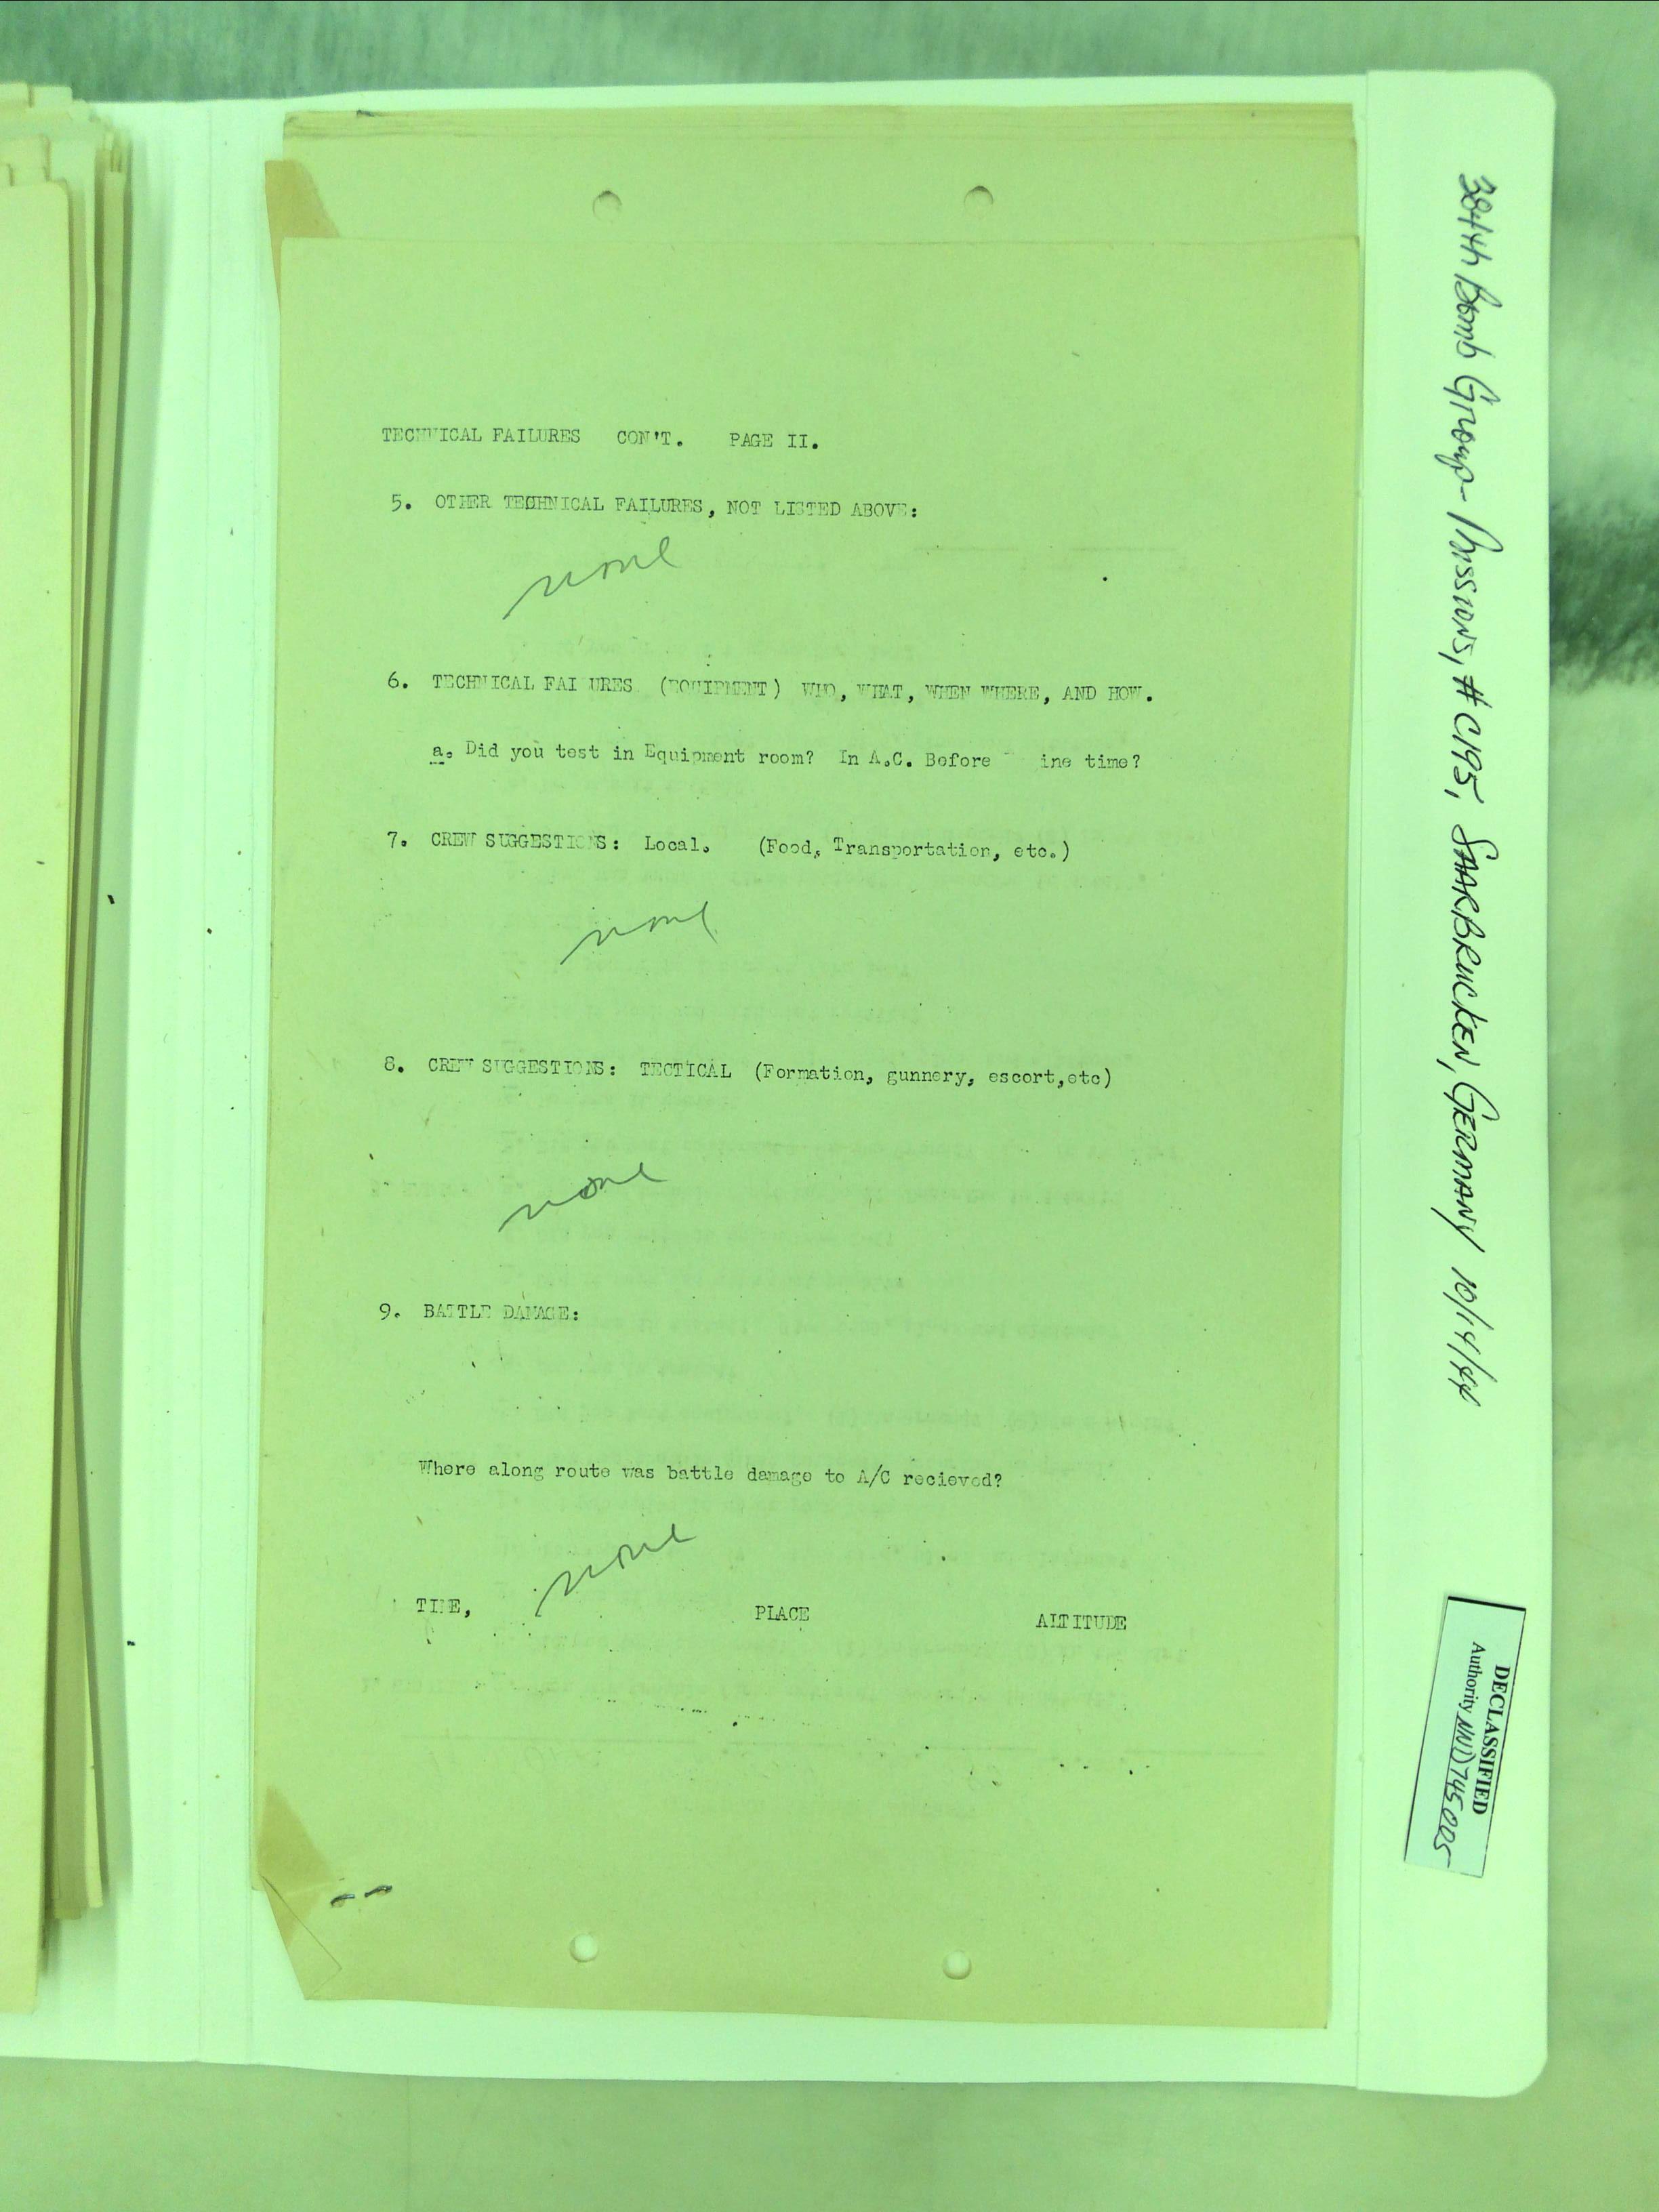 TECHNICAL FAILURES CON'T. PAGE II.
5. OTHER TECHNICAL FAILURES, NOT LISTED ABOVE:
none
6. TECHNICAL FAI URES (EQUIPMENT) WHO, WHAT, WHEN WHERE, AND HOW.
a. Did you test in Equipment room? In A.C. Before ine time?
7. CREW SUGGESTIONS: Local. (Food, Transportation, etc.)
none
8. CREW SUGGESTIONS: TECTICAL (Formation, gunnery, escort,etc)
none
9. BATTLE DAMAGE:
Where along route was battle damage to A/C recieved?
none
TIME, PLACE ALTITUDE
384th Bomb Group- Missions, #C195, SAARBRUCKEN, GERMANY 10/14/44
DECLASSIFIED
Authority NND745005